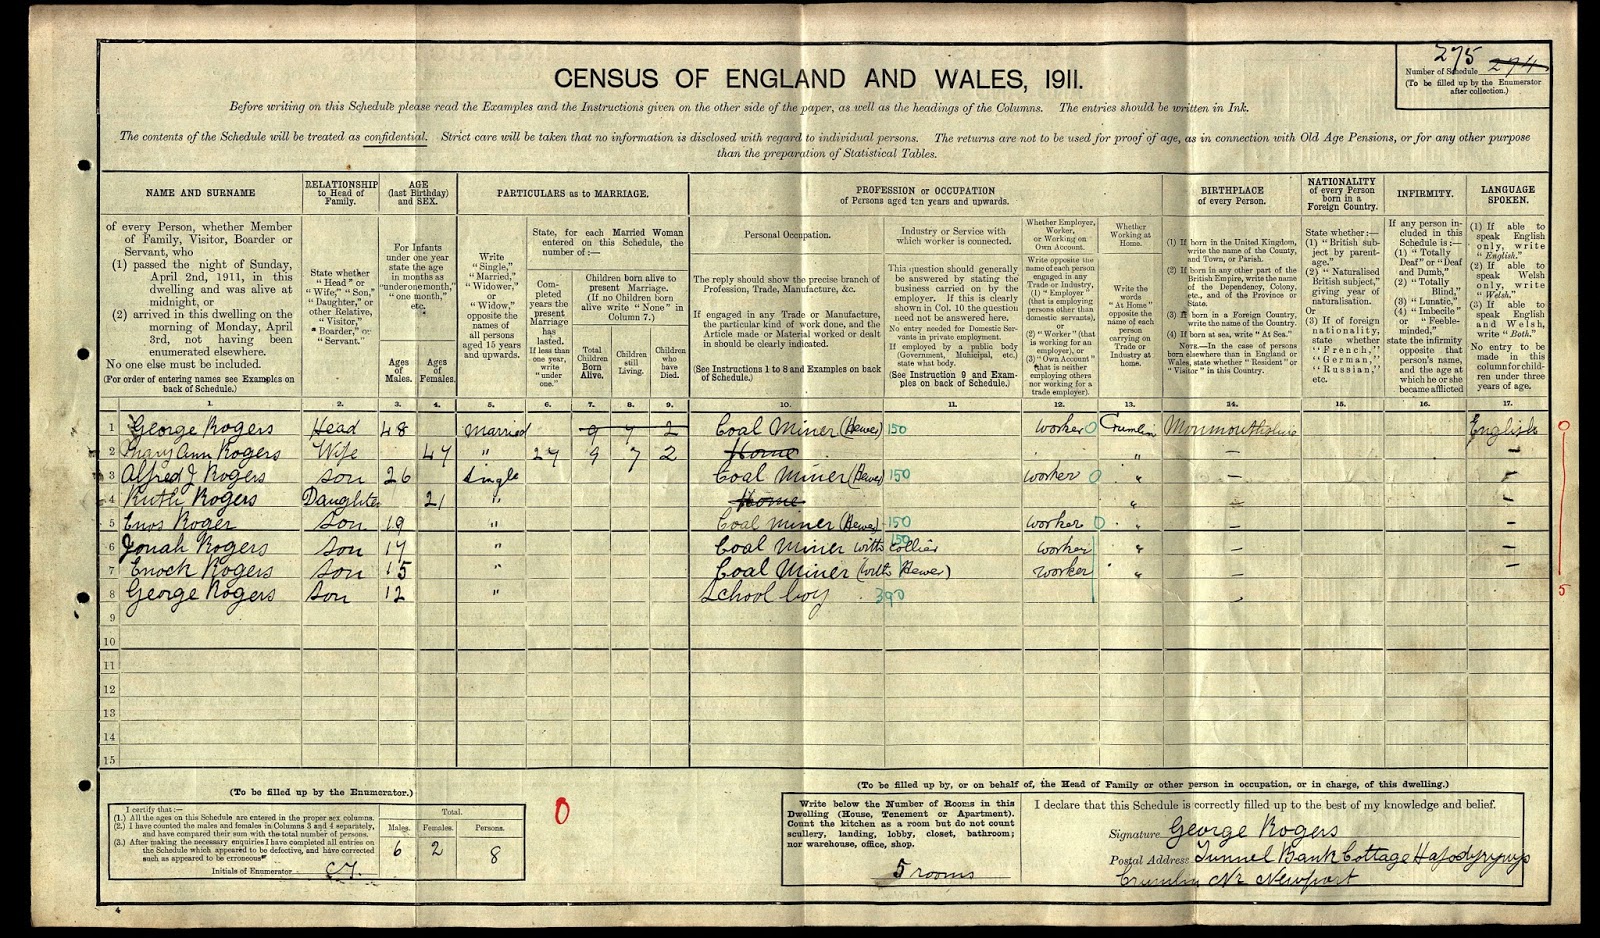 275
Number of Schedule 274
(To be filled up by the Enumerator
after collection.)
CENSUS OF ENGLAND AND WALES, 1911.
Before writing on this Schedule please read the Examples and the Instructions given on the other side of the paper, as well as the headings of the Columns. The entries should be written in Ink.
The contents of the Schedule will be treated as confidential. Strict care will be taken that no information is disclosed with regard to individual persons. The returns are not to be used for proof of age, as in connection with Old Age Pensions, or for any other purpose
than the preparation of Statistical Tables.
NAME AND SURNAME
of every Person, whether Member
of Family, Visitor, Boarder or
Servant, who
(1) passed the night of Sunday,
April 2nd, 1911, in this
dwelling and was alive at
midnight, or
(2) arrived in this dwelling on the
morning of Monday, April
3rd, not having been
enumerated elsewhere.
No one else must be included.
(For order of entering names see Examples on
back of Schedule.)
RELATIONSHIP
to Head of
Family.
State whether
"Head," or
"Wife," "Son,"
"Daughter," or
other Relative,
"Visitor,"
"Boarder," or
"Servant."
AGE
(last Birthday)
and SEX.
For Infants
under one year
state the age
in months as
"under one month,"
"one month,"
etc.
Ages
of
Males.
Ages
of
Females.
PARTICULARS as to MARRIAGE.
Write
"Single,"
"Married,"
"Widower,"
or
"Widow,"
opposite the
names of
all persons
aged 15 years
and upwards.
State, for each Married Woman
entered on this Schedule, the
number of:—
Completed
years the
present
Marriage
has
lasted.
If less than
one year,
write
"under
one."
Children born alive to
present Marriage.
(If no Children born
alive write "None" in
Column 7.)
Total
Children
Born
Alive.
Children
still
Living.
Children
who
have
Died.
PROFESSION or OCCUPATION
of Persons aged ten years and upwards.
Personal Occupation.
The reply should show the precise branch of
Profession, Trade, Manufacture, &c.
If engaged in any Trade or Manufacture,
the particular kind of work done, and the
Article made or Material worked or dealt
in should be clearly indicated.
(See Instructions 1 to 8 and Examples on back
of Schedule.)
Industry or Service with
which worker is connected.
This question should generally
be answered by stating the
business carried on by the
employer. If this is clearly
shown in Col. 10 the question
need not be answered here.
No entry needed for Domestic Servants
in private employment.
If employed by a public body
(Government, Municipal, etc.)
state what body.
(See Instruction 9 and Examples
on back of Schedule.)
Whether Employer,
Worker,
or Working on
Own Account.
Write opposite the
name of each person
engaged in any
Trade or Industry,
(1) "Employer"
(that is employing
persons other than
domestic servants),
or
(2) "Worker" (that
is working for an
employer), or
(3) "Own Account"
(that is neither
employing others
nor working for a
trade employer).
Whether
Working at
Home.
Write the
words
"At Home"
opposite the
name of each
person
carrying on
Trade or
Industry at
home.
BIRTHPLACE
of every Person.
(1) If born in the United Kingdom,
write the name of the County,
and Town, or Parish.
(2) If born in any other part of the
British Empire, write the name
of the Dependency, Colony,
etc., and of the Province or
State.
(3) If born in a Foreign Country,
write the name of the Country.
(4) If born at sea, write "At Sea."
NOTE.—In the case of persons
born elsewhere than in England or
Wales, state whether "Resident" or
"Visitor" in this Country.
NATIONALITY
of every Person
born in a
Foreign Country.
State whether:—
(1) "British subject
by parentage."
(2) "Naturalised
British subject,"
giving year of
naturalisation.
Or
(3) If of foreign
nationality,
state whether
"French,"
"German,"
"Russian,"
etc.
INFIRMITY.
If any person included
in this
Schedule is:—
(1) "Totally
Deaf" or "Deaf
and Dumb,"
(2) "Totally
Blind,"
(3) "Lunatic,"
(4) "Imbecile"
or "Feeble-minded,"
state the infirmity
opposite that
person's name,
and the age at
which he or she
became afflicted
LANGUAGE
SPOKEN.
(1) If able to
speak English
only, write
"English."
(2) If able to
speak Welsh
only, write
"Welsh."
(3) If able to
speak English
and Welsh,
write "Both."
No entry to be
made in this
column for children
under three
years of age.
1. 2. 3. 4. 5. 6. 7. 8. 9. 10. 11. 12. 13. 14. 15. 16. 17.
1 George Rogers Head 48 Married 9 7 2 Coal Miner (Hewer) 150 Worker 0 Crumlin Monmouthshire English 0
2 Mary Ann Rogers Wife 47 " 27 9 7 2 Home "
3 Alfred J Rogers Son 26 Single Coal Miner (Hewer) 150 Worker 0 "
4 Ruth Rogers Daughter 21 " Home "
5 Enos Roger Son 19 " Coal Miner (Hewer) 150 Worker 0 "
6 Jonah Rogers Son 17 " Coal Miner with Collier 150 Worker "
7 Enoch Rogers Son 15 " Coal Miner (with Hewer) Worker "
8 George Rogers Son 12 " School boy 390 5
9
10
11
12
13
14
15
(To be filled up by the Enumerator.)
I certify that:—
(1.) All the ages on this Schedule are entered in the proper sex columns.
(2.) I have counted the males and females in Columns 3 and 4 separately,
and have compared their sum with the total number of persons.
(3.) After making the necessary enquiries I have completed all entries on
the Schedule which appeared to be defective, and have corrected
such as appeared to be erroneous.
Initials of Enumerator
Total.
Males. Females. Persons.
6 2 8
0
(To be filled up by, or on behalf of, the Head of Family or other person in occupation, or in charge, of this dwelling.)
Write below the Number of Rooms in this
Dwelling (House, Tenement or Apartment).
Count the kitchen as a room but do not count
scullery, landing, lobby, closet, bathroom;
nor warehouse, office, shop.
5 rooms
I declare that this Schedule is correctly filled up to the best of my knowledge and belief.
Signature George Rogers
Postal Address Tunnel Bank Cottage Hafodyrynys
Crumlin Nr Newport
4